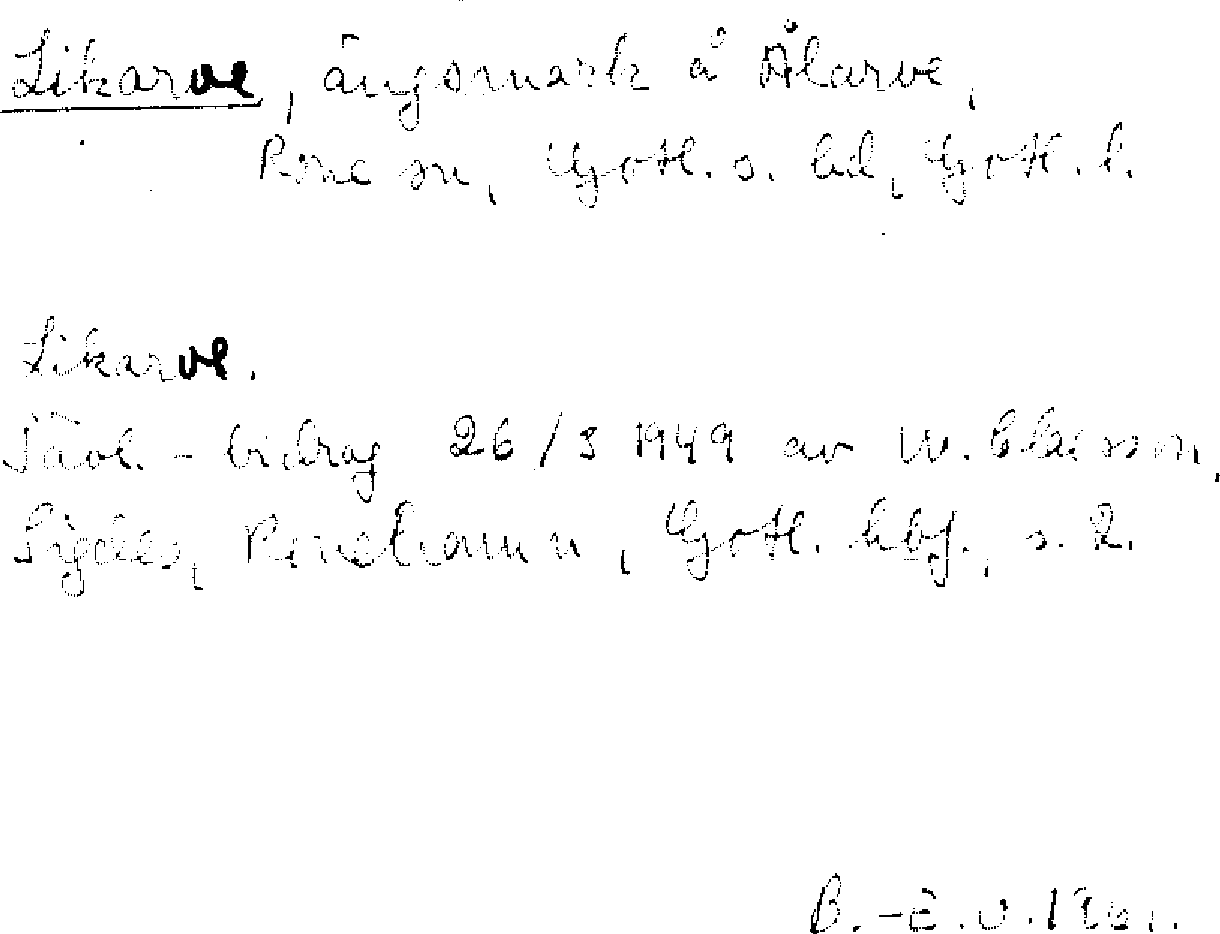 Likarve, ängsmark å Ålarve,
Rone sn, Gotl. s. hd, Gotl. l.
Likarve.
Tävl.-bidrag 26/3 1949 av W. Claesson,
Sigdes, Ronehamn, Gotl. hbf., s. 2.
B.-E.